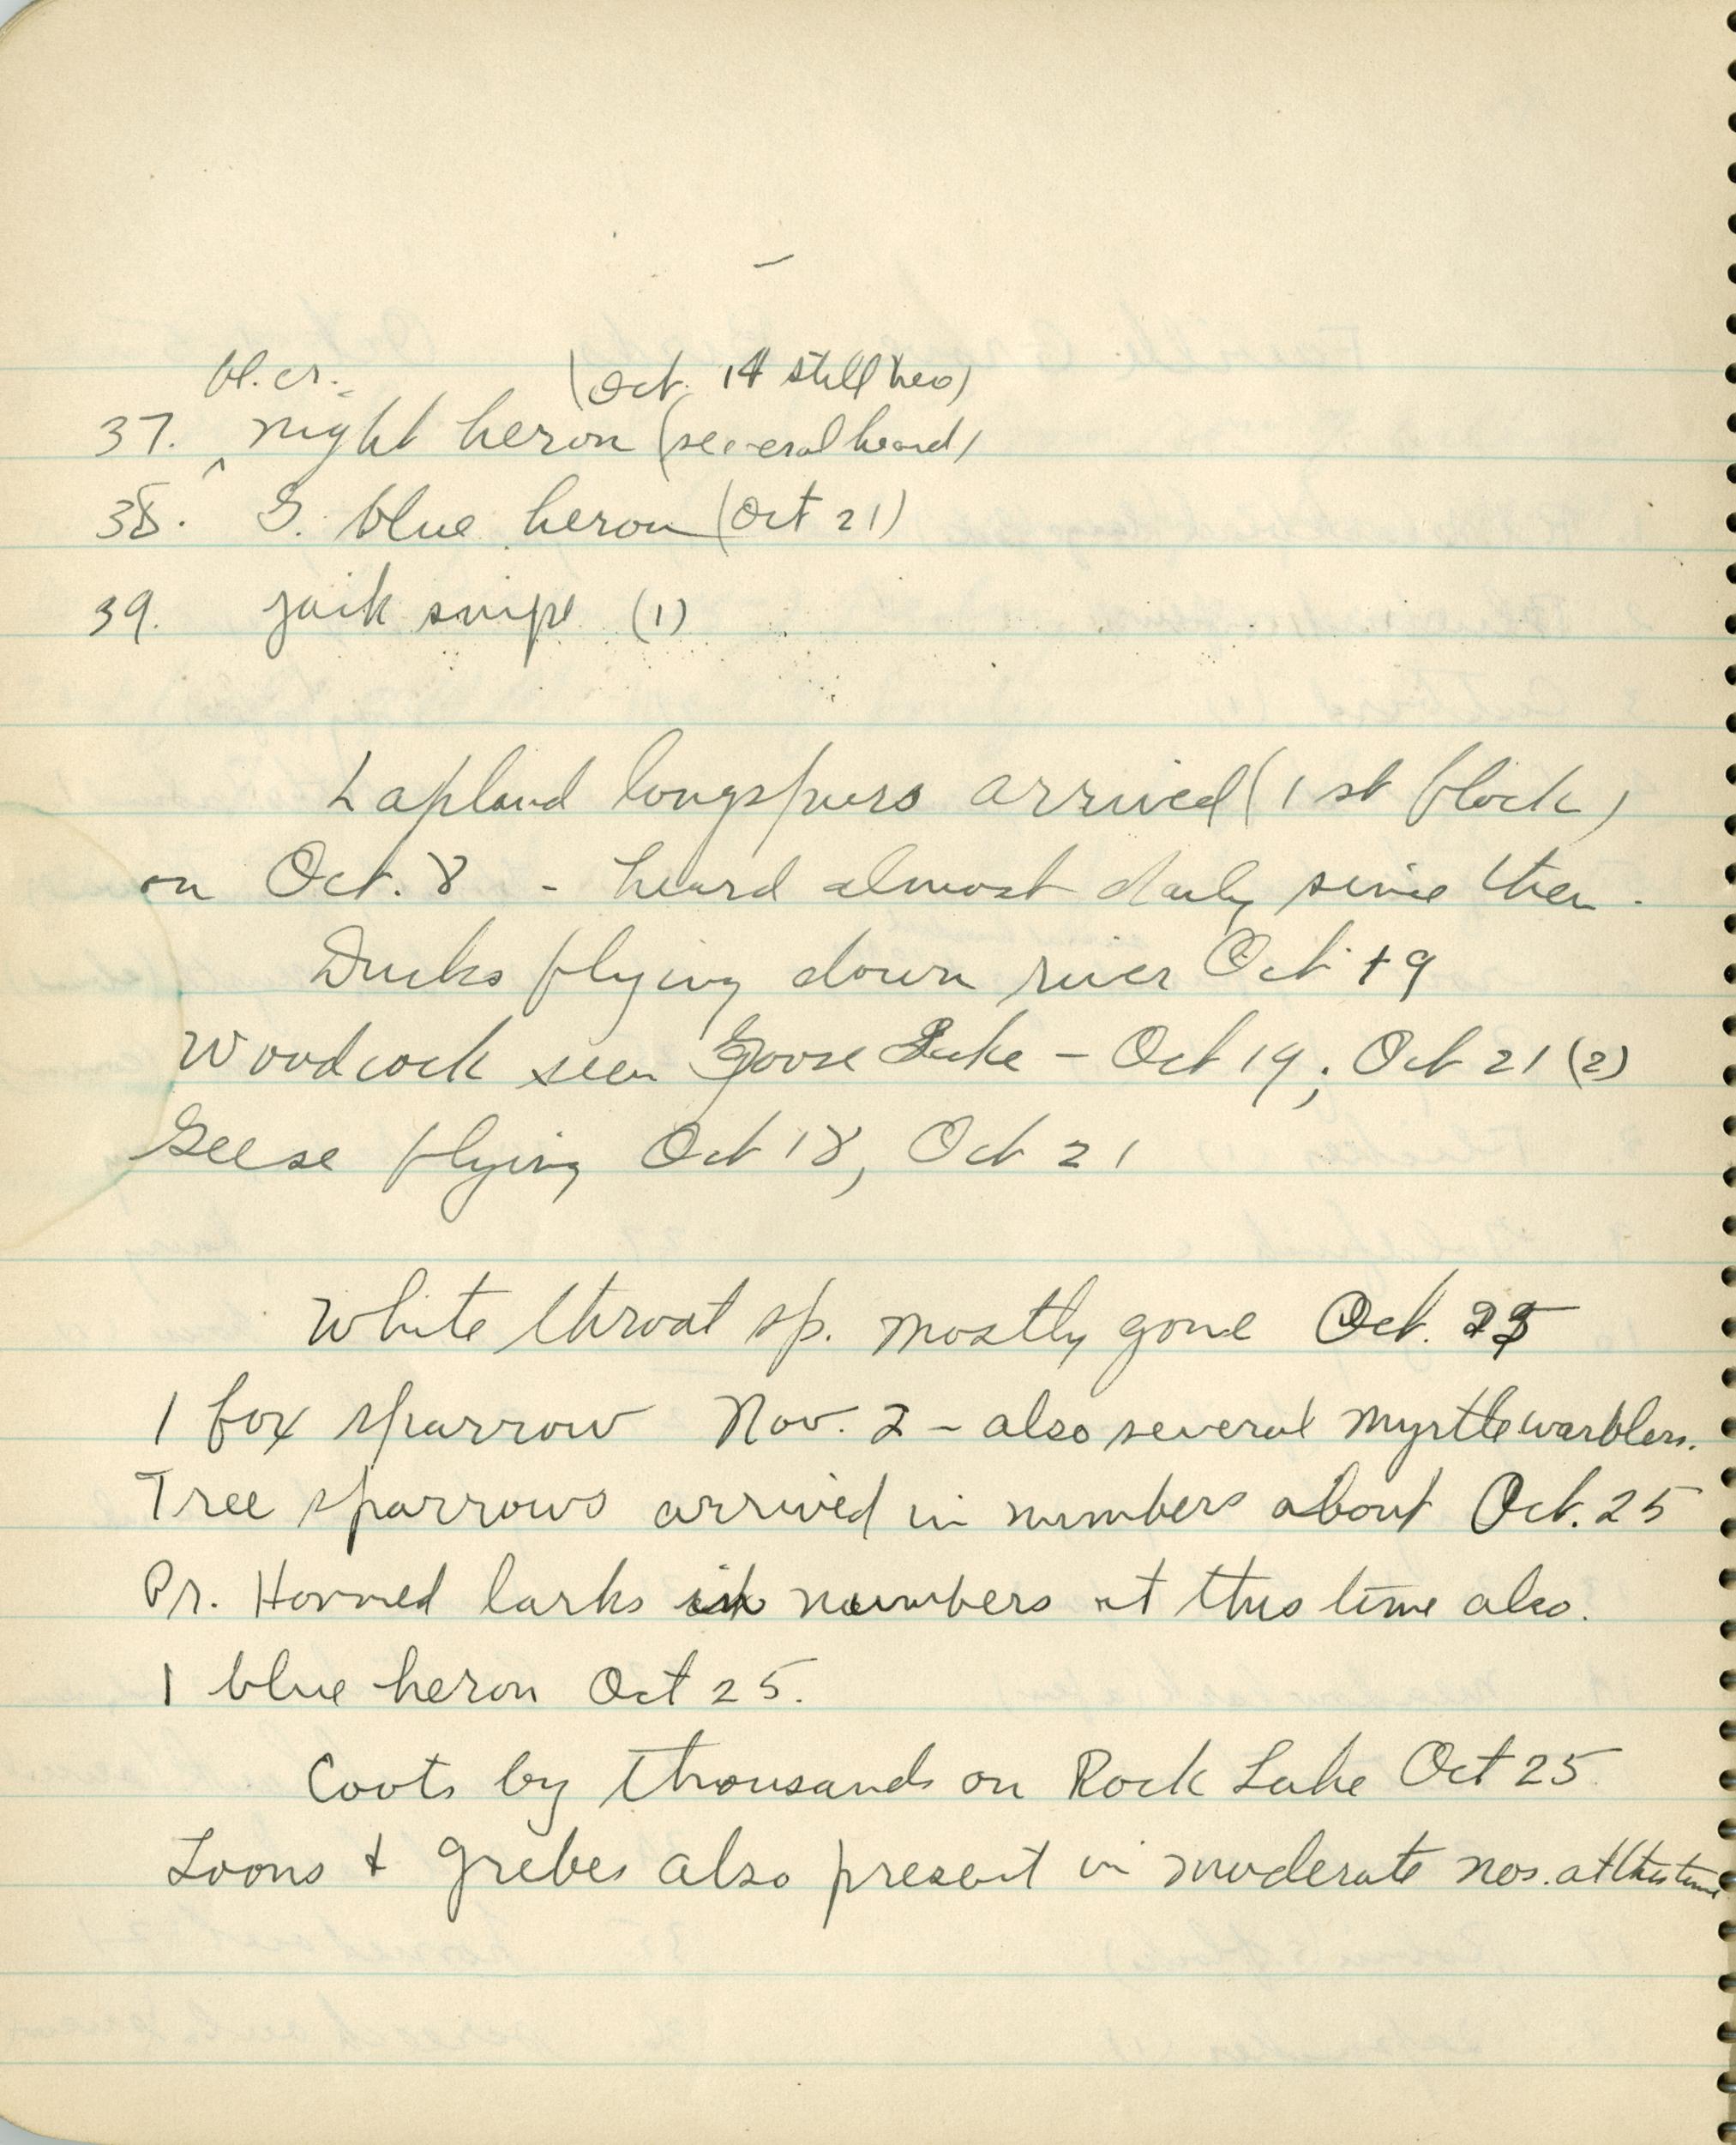 bl. cr. (Oct. 14 still here)
37. ^ night heron (several heard)
38. G. blue heron (Oct 21)
39. jack snipe (1)
Lapland longspurs arrived (1st flock)
on Oct. 8 - heard almost daily since then.
Ducks flying down river Oct 19
Woodcock seen Goose Lake - Oct 19; Oct 21 (2)
Geese flying Oct 18, Oct 21
White throat sp. mostly gone Oct.
1 fox sparrow Nov. 2 - also several myrtle warblers.
Tree sparrows arrived in numbers about Oct. 25
Pr. Horned larks in numbers at this time also.
1 blue heron Oct 25.
Coots by thousands on Rock Lake Oct 25.
Loons + grebes also present in moderate nos. at this time